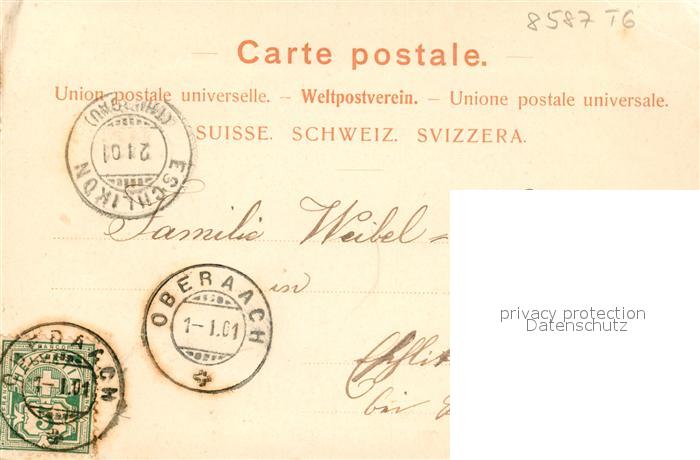 8587 TG
Carte postale.
Union postale universelle. – Weltpostverein. – Unione postale universale.
SUISSE. SCHWEIZ. SVIZZERA.
ESCHLIKON (THURGAU)
2 I 01
Familie Weibel-
in
bei
privacy protection
Datenschutz
OBERAACH
1-I.01
OBERAACH
1-I.01
HELVETIA